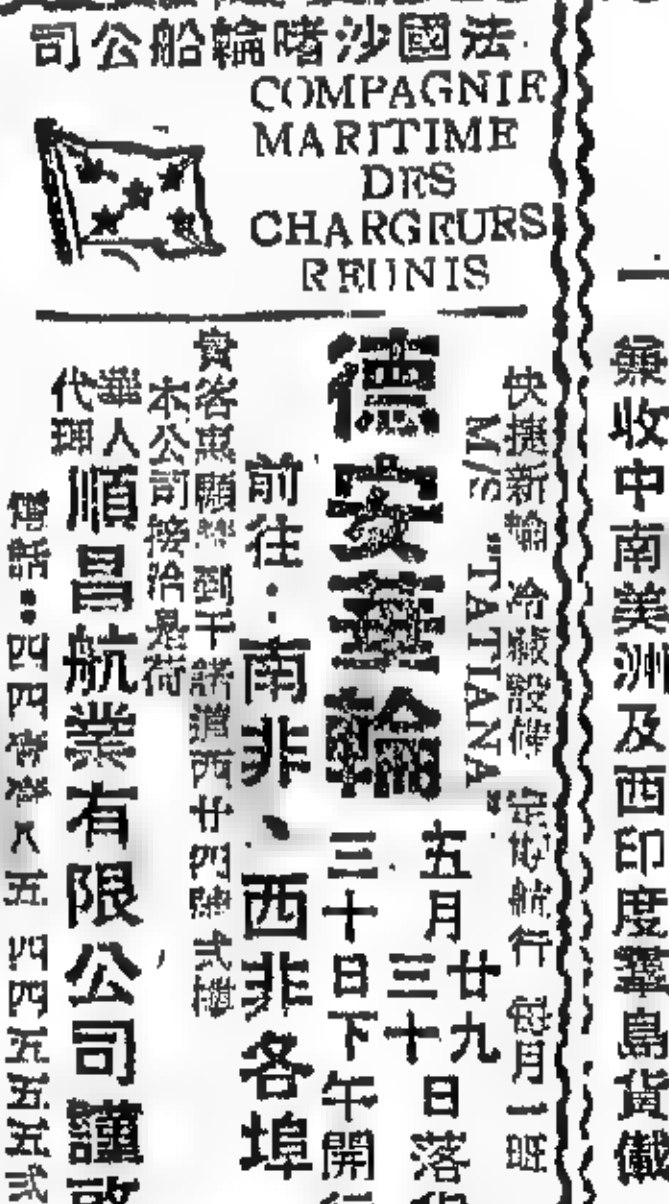 法國沙嗜輪船公司
COMPAGNIE
MARITIME
DES
CHARGEURS
REUNIS
快捷新輪 冷藏設備 定期航行 每月一班
M/S "TATIANA"
德安華輪
五月廿九三十日落
三十日下午開
前往:南非、西非各埠
貴客惠顧請到干諾道西廿四號弍樓
本公司接洽是荷
華人代理 順昌航業有限公司謹啟
電話:四四
兼收中南美洲及西印度羣島貨儎